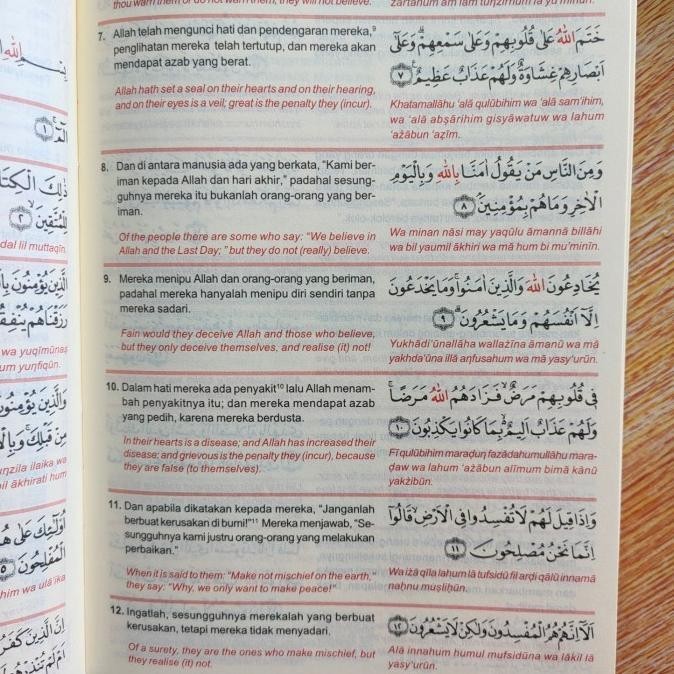 بِسْمِ اللهِ
الٓمّٓ ۚ ١
ذٰلِكَ الْكِتٰ
لِّلْمُتَّقِيْنَ ٢
dal lil muttaqīn.
الَّذِيْنَ يُؤْمِنُوْنَ بِالْ
رَزَقْنٰهُمْ يُنْفِقُ
wa yuqīmūnaṣ
um yunfiqūn.
وَالَّذِيْنَ يُؤْمِنُوْنَ
مِنْ قَبْلِكَ ۚ وَبِالْ
unzila ilaika wa
il ākhirati hum
اُولٰۤىِٕكَ عَلٰى هُ
الْمُفْلِحُوْنَ ٥
him wa ulā'ika
اِنَّ الَّذِيْنَ كَفَرُ
اَمْ لَمْ تُنْذِرْهُ
thou warn them or do not warn them, they will not believe.
7. Allah telah mengunci hati dan pendengaran mereka,⁹
penglihatan mereka telah tertutup, dan mereka akan
mendapat azab yang berat.
Allah hath set a seal on their hearts and on their hearing,
and on their eyes is a veil; great is the penalty they (incur).
خَتَمَ اللّٰهُ عَلٰى قُلُوْبِهِمْ وَعَلٰى سَمْعِهِمْ ۗ وَعَلٰٓى
اَبْصَارِهِمْ غِشَاوَةٌ وَّلَهُمْ عَذَابٌ عَظِيْمٌ ٧
Khatamallāhu 'alā qulūbihim wa 'alā sam'ihim,
wa 'alā abṣārihim gisyāwatuw wa lahum
'ażābun 'aẓīm.
8. Dan di antara manusia ada yang berkata, "Kami ber-
iman kepada Allah dan hari akhir," padahal sesung-
guhnya mereka itu bukanlah orang-orang yang ber-
iman.
Of the people there are some who say: "We believe in
Allah and the Last Day; " but they do not (really) believe.
وَمِنَ النَّاسِ مَنْ يَّقُوْلُ اٰمَنَّا بِاللّٰهِ وَبِالْيَوْمِ
الْاٰخِرِ وَمَا هُمْ بِمُؤْمِنِيْنَ ۘ ٨
Wa minan nāsi may yaqūlu āmannā billāhi
wa bil yaumil ākhiri wa mā hum bi mu'minīn.
9. Mereka menipu Allah dan orang-orang yang beriman,
padahal mereka hanyalah menipu diri sendiri tanpa
mereka sadari.
Fain would they deceive Allah and those who believe,
but they only deceive themselves, and realise (it) not!
يُخٰدِعُوْنَ اللّٰهَ وَالَّذِيْنَ اٰمَنُوْا ۚ وَمَا يَخْدَعُوْنَ
اِلَّآ اَنْفُسَهُمْ وَمَا يَشْعُرُوْنَ ۗ ٩
Yukhādi'ūnallāha wallażīna āmanū wa mā
yakhda'ūna illā anfusahum wa mā yasy'urūn.
10. Dalam hati mereka ada penyakit¹⁰ lalu Allah menam-
bah penyakitnya itu; dan mereka mendapat azab
yang pedih, karena mereka berdusta.
In their hearts is a disease; and Allah has increased their
disease; and grievous is the penalty they (incur), because
they are false (to themselves).
فِيْ قُلُوْبِهِمْ مَّرَضٌ ۙ فَزَادَهُمُ اللّٰهُ مَرَضًا ۚ
وَلَهُمْ عَذَابٌ اَلِيْمٌ ۙ بِمَا كَانُوْا يَكْذِبُوْنَ ١٠
Fī qulūbihim maraḍun fazādahumullāhu mara-
ḍaw wa lahum 'ażābun alīmum bimā kānū
yakżibūn.
11. Dan apabila dikatakan kepada mereka, "Janganlah
berbuat kerusakan di bumi!"¹¹ Mereka menjawab, "Se-
sungguhnya kami justru orang-orang yang melakukan
perbaikan."
When it is said to them: "Make not mischief on the earth,"
they say: "Why, we only want to make peace!"
وَاِذَا قِيْلَ لَهُمْ لَا تُفْسِدُوْا فِى الْاَرْضِۙ قَالُوْٓا
اِنَّمَا نَحْنُ مُصْلِحُوْنَ ١١
Wa iżā qīla lahum lā tufsidū fil arḍi qālū innamā
naḥnu muṣliḥūn.
12. Ingatlah, sesungguhnya merekalah yang berbuat
kerusakan, tetapi mereka tidak menyadari.
Of a surety, they are the ones who make mischief, but
they realise (it) not.
اَلَآ اِنَّهُمْ هُمُ الْمُفْسِدُوْنَ وَلٰكِنْ لَّا يَشْعُرُوْنَ ١٢
Alā innahum humul mufsidūna wa lākil lā
yasy'urūn.